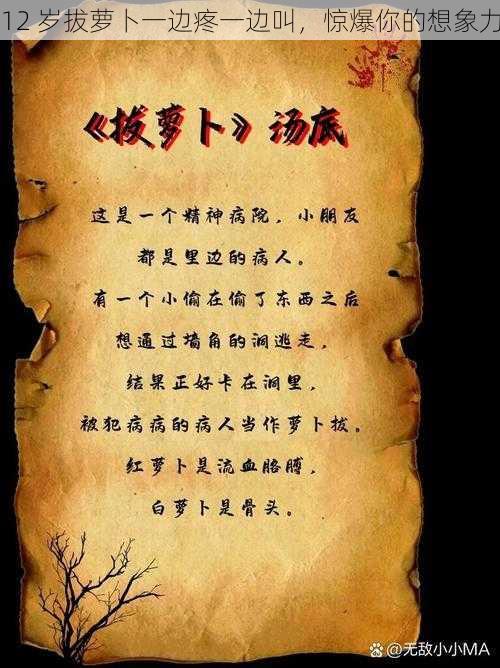 12 岁拔萝卜一边疼一边叫，惊爆你的想象力
《拔萝卜》汤底
这是一个精神病院，小朋友
都是里边的病人。
有一个小偷在偷了东西之后
想通过墙角的洞逃走，
结果正好卡在洞里，
被犯病病的病人当作萝卜拔。
红萝卜是流血胳膊，
白萝卜是骨头。
@无敌小小MA